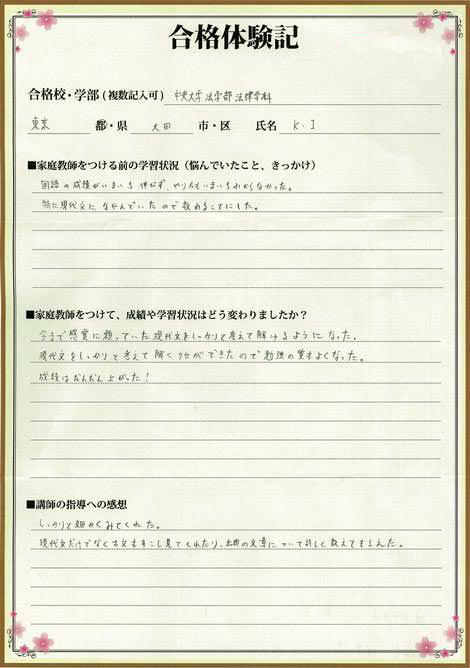 合格体験記
合格校・学部(複数記入可) 中央大学 法学部 法律学科
東京 都・県 大田 市・区 氏名 K.I
■家庭教師をつける前の学習状況(悩んでいたこと、きっかけ)
国語の成績がいまいち伸びず、やり方もいまいちわからなかった。
特に現代文になやんでいたので教わることにした。
■家庭教師をつけて、成績や学習状況はどう変わりましたか?
今まで感覚に頼っていた現代文をしっかりと考えて解けるようになった。
現代文をしっかりと考えて解くクセができたので勉強の質もよくなった。
成績はだんだん上がった!
■講師の指導への感想
しっかりと細かくみてくれた。
現代文だけでなく古文もすこし見てくれたり、の文章について詳しく教えてもらえた。